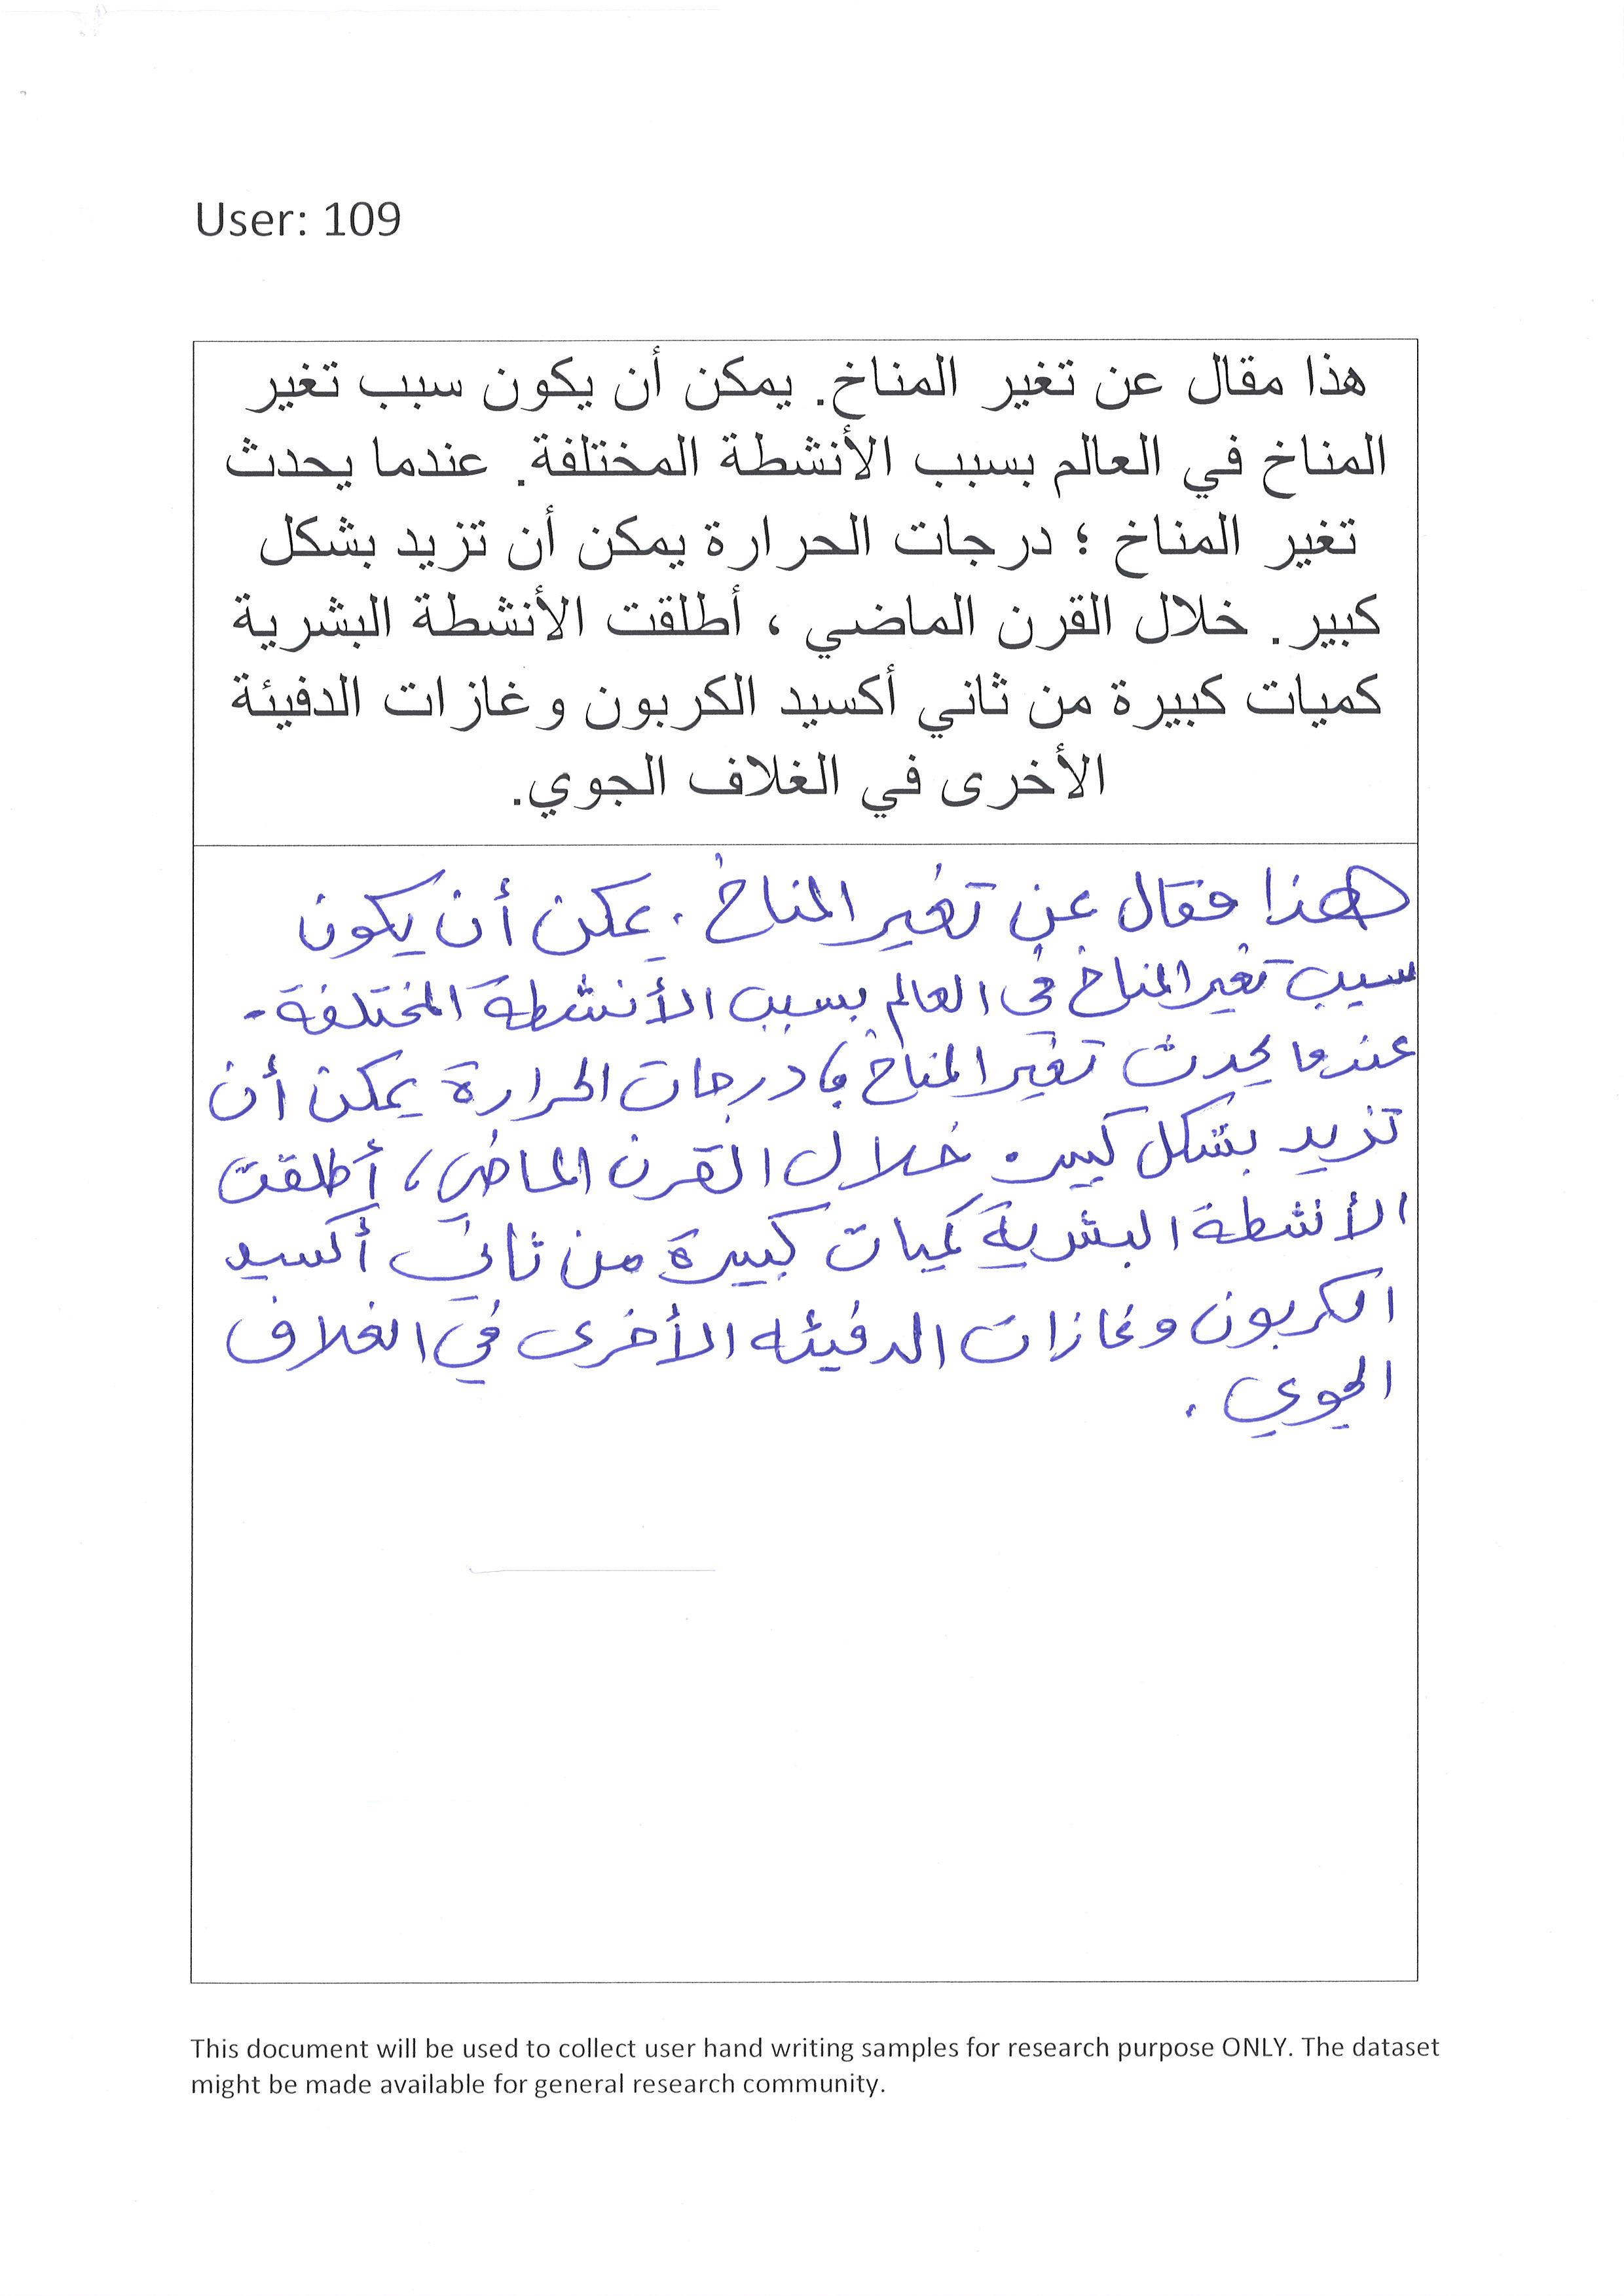 User: 109
هذا مقال عن تغير المناخ. يمكن أن يكون سبب تغير
المناخ في العالم بسبب الأنشطة المختلفة. عندما يحدث
تغير المناخ ؛ درجات الحرارة يمكن أن تزيد بشكل
كبير. خلال القرن الماضي ، أطلقت الأنشطة البشرية
كميات كبيرة من ثاني أكسيد الكربون وغازات الدفيئة
الأخرى في الغلاف الجوي.
هذا مقال عن تغير المناخ . يمكن أن يكون
سبب تغير المناخ في العالم بسبب الأنشطة المختلفة.
عندما يحدث تغير المناخ ؛ درجات الحرارة يمكن أن
تزيد بشكل كبير. خلال القرن الماضي ، أطلقت
الأنشطة البشرية كميات كبيرة من ثاني أكسيد
الكربون وغازات الدفيئه الأخرى في الغلاف
الجوي .
This document will be used to collect user hand writing samples for research purpose ONLY. The dataset
might be made available for general research community.